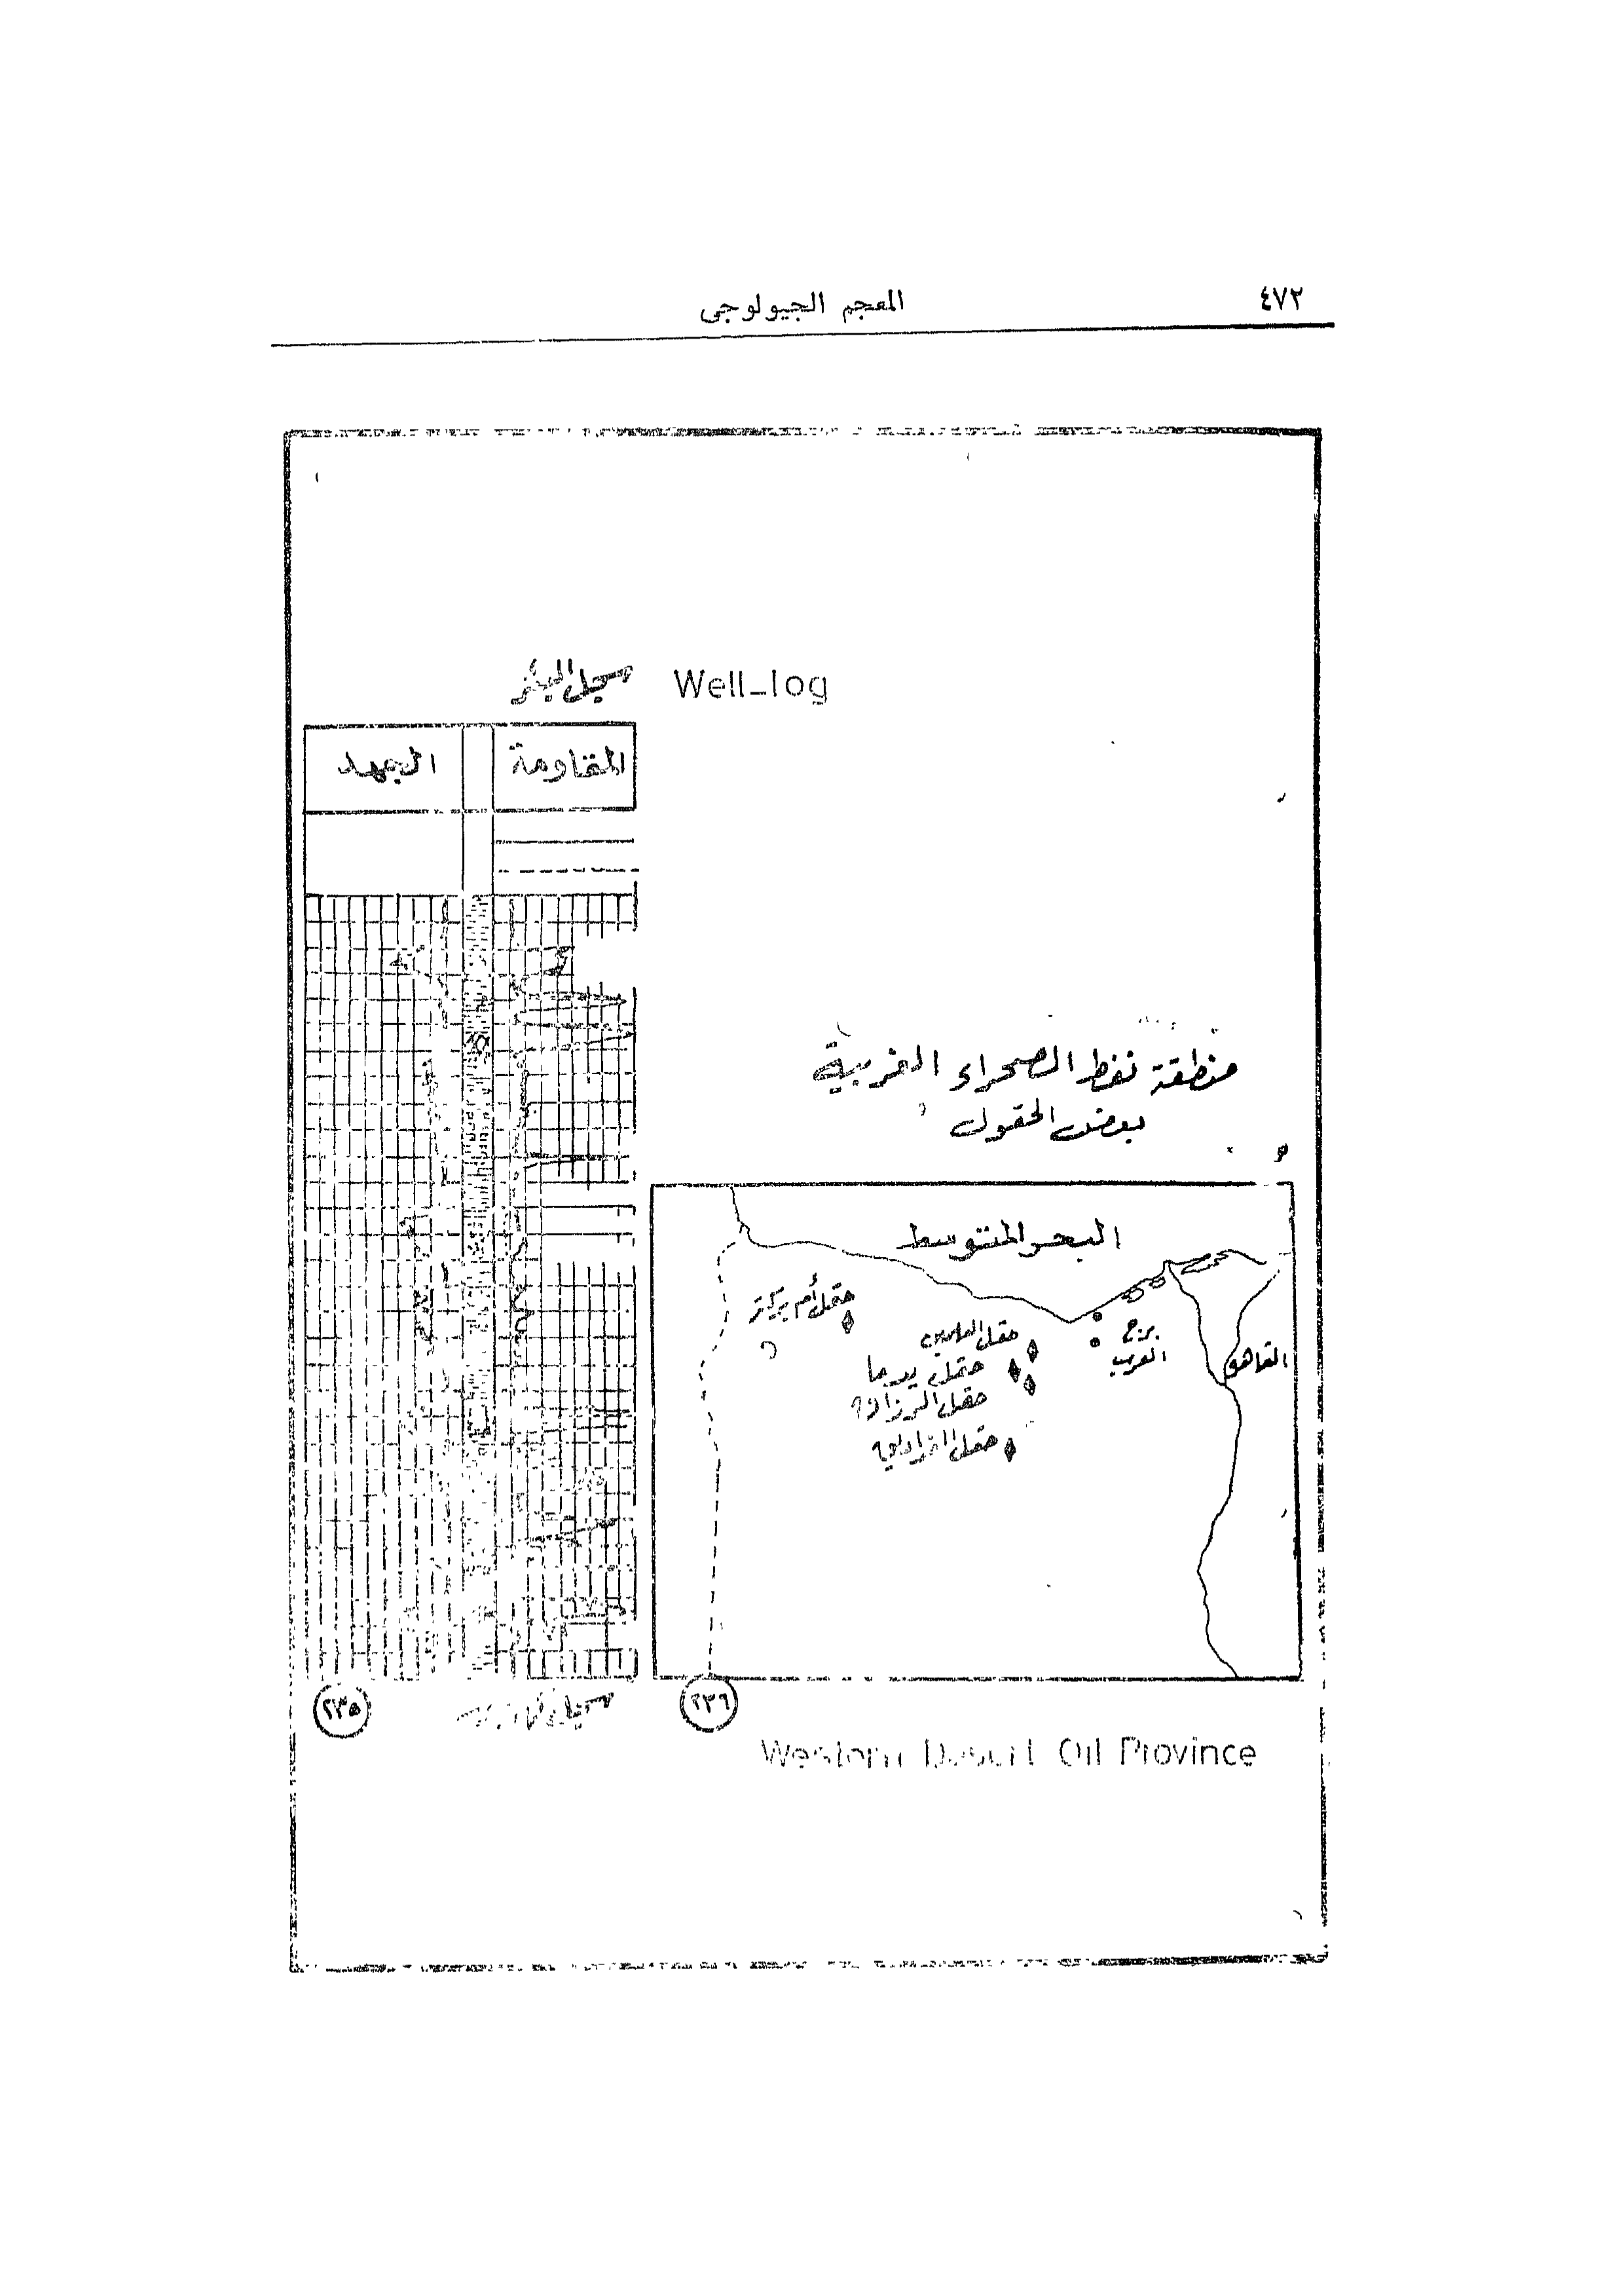 ٤٧٢
المعجم الجيولوجى
سجل البئر Well-log
المقاومة
الجهد
منطقة نفط الصحراء الغربية
بعض الحقول
البحر المتوسط
حقل أم بركة
حقل العلمين
حقل يدما
حقل الرزاق
حقل
برج
العرب
القاهرة
٢٣٥
٢٣٦
Western Desert Oil Province